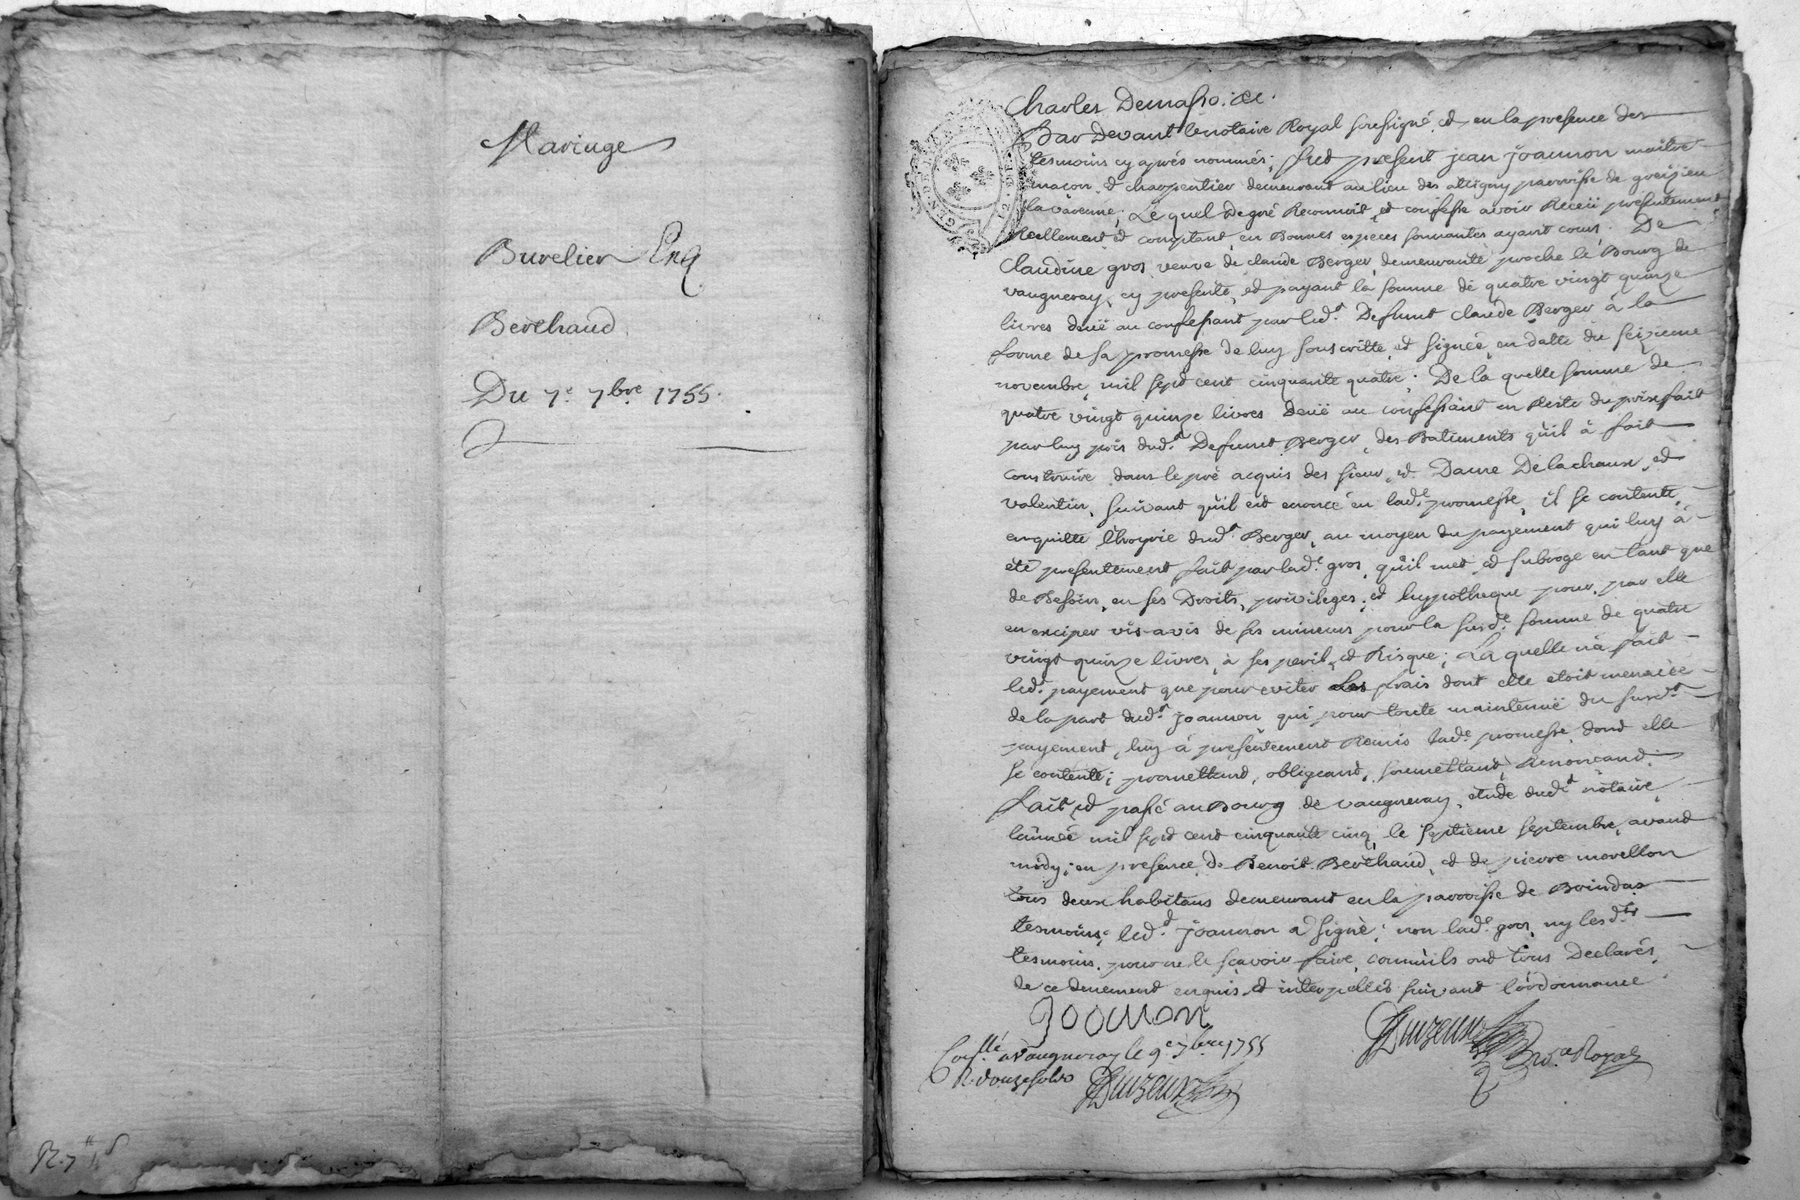 Mariage
Burelier Enq
Berthaud
Du 7e. 7bre 1755.
R. 7
Charles Demasso. &c.
Par Devant le notaire Royal soussigné, et en la presence des
tesmoins cy aprés nommés; fut present jean joannon maitre
macon, et charpentier demeurant au lieu des attigny parroisse de greizieu
la varenne; Lequel Degré Reconnoit, et confesse avoir Receü presentement
Reellement et comptant, en Bonnes especes sonnantes ayant cours; De
Claudine gros, veuve de claude Berger, demeurante proche le Bourg de
vaugneray, cy presente, et payant la somme de quatre vingt quinze
livres deüe au confessant par led.t Defunt claude Berger à la
forme de sa promesse de luy souscritte, et signée, en datte du seizieme
novembre, mil sept cent cinquante quatre; De la quelle somme de
quatre vingt quinze livres deüe au confessant en Reste du prixfait
par luy pris dud.t Defunt Berger, des Batiments qu'il à fait
construire dans le pré acquis des sieur, et Dame Delachaux, et
valentin, suivant qu'il est enoncé en lad.e promesse, il se contente,
en quitte l'hoyrie dud.t Berger, au moyen du payement qui luy à
été presentement fait par lad.e gros, qu'il met et subroge en tant que
de Besoin, en ses Droits, privileges, et hypotheque pour, par elle
en exciper vis-avis de ses mineurs pour la susd.e somme de quatre
vingt quinze livres, à ses peril, et Risque; La quelle n'à fait
led.t payement que pour eviter les frais dont elle etoit menacée
de la part dud.t joannon qui pour toute maintenüe du susd.t
payement, luy à presentement Remis lad.e promesse, dont elle
se contente; promettant, obligeant, soumettant, Renonceant.
fait et passé au Bourg de vaugneray, étude dud.t notaire,
l'année mil sept cent cinquante cinq, le septieme septembre, avant
midy; en presence de Benoit Berthaud, et de pierre morellon
tous deux habitans demeurant en la parroisse de Brindas
tesmoins; led.t joannon a signé; non lad.e gros, ny lesd.ts
tesmoins, pour ne le sçavoir faire, comm'ils ont tous Declarés,
de ce deuement enquis, et interpellés suivant l'ordonnance
joanon
not.re Royal
Con.llé a Vaugneray le 9e 7bre 1755
R. douze sols